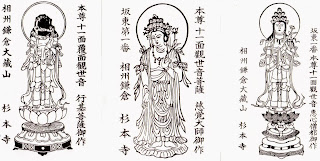 本尊十一面覆面觀世音 行基菩薩御作
相州鎌倉大藏山 杉本寺
本尊十一面觀世音菩薩 慈覚大師御作
坂東第一番
相州鎌倉 杉本寺
坂東第一番 本尊十一面觀世音 恵心僧都御作
相州鎌倉大藏山 杉本寺